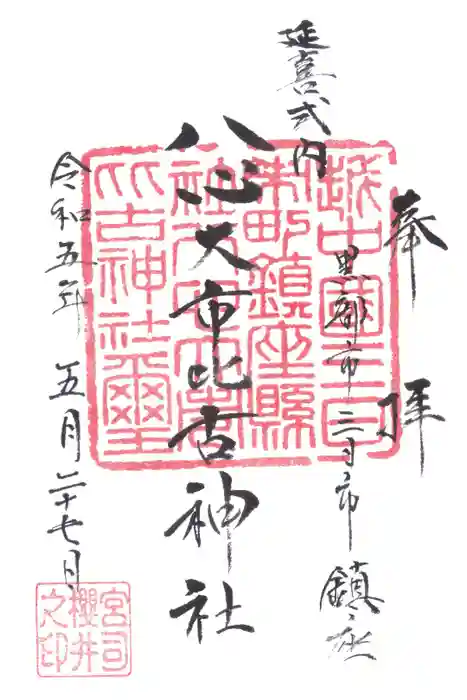 奉拝
延喜式内
黒部市三日市鎮座
八心大市比古神社
令和五年 五月二十七日
越中國三日
市町鎮座縣
社八心大市
比古神社璽
宮司
櫻井
之印